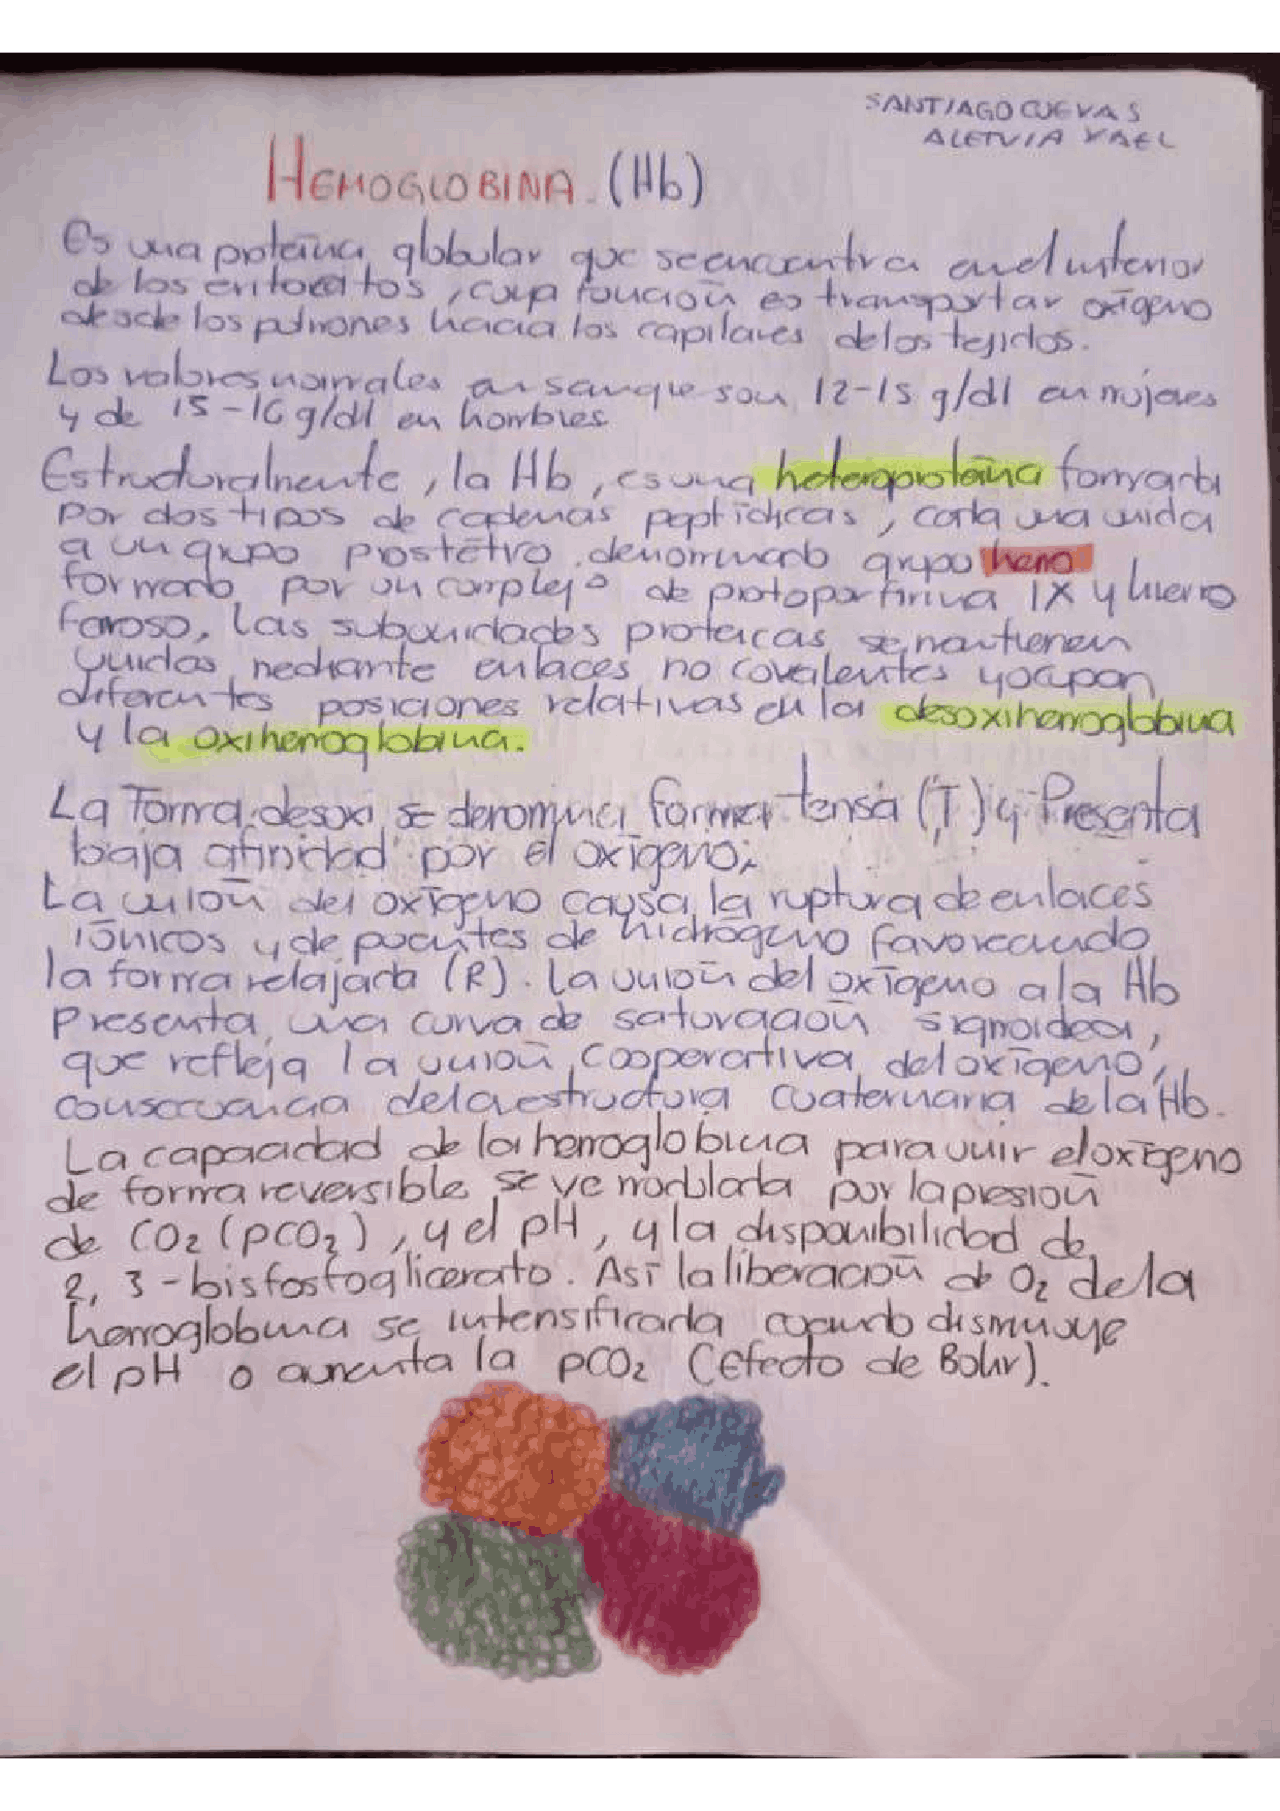 SANTIAGO CUEVAS
ALETVIA YAEL
HEMOGLOBINA. (Hb)
Es una proteína globular que se encuentra en el interior
de los eritocitos, cuya función es transportar oxígeno
desde los pulmones hacia los capilares de los tejidos.
Los valores normales en sangre son 12-15 g/dl en mujeres
y de 15-16 g/dl en hombres
Estructuralmente, la Hb, es una heteroproteína formada
por dos tipos de cadenas peptídicas, cada una unida
a un grupo prostétro denominado grupo hemo
formado por un complejo de protoporfirina IX y hierro
ferroso. Las subunidades proteicas se mantienen
unidas mediante enlaces no covalentes y ocupan
diferentes posiciones relativas en la desoxihemoglobina
y la oxihemoglobina.
La forma desoxi se denomina forma tensa (T) y Presenta
baja afinidad por el oxígeno;
La unión del oxígeno causa la ruptura de enlaces
iónicos y de puentes de hidrógeno favoreciendo
la forma relajada (R). La unión del oxígeno a la Hb
Presenta una curva de saturación sigmoidea,
que refleja la unión cooperativa del oxígeno,
consecuencia de la estructura cuaternaria de la Hb.
La capacidad de la hemoglobina para unir el oxígeno
de forma reversible se ve modulada por la presión
de CO₂ (pCO₂), y el pH, y la disponibilidad de
2, 3 - bisfosfoglicerato. Así la liberación de O₂ de la
hemoglobina se intensificada cuando disminuye
el pH o aumenta la pCO₂ (efecto de Bohr).